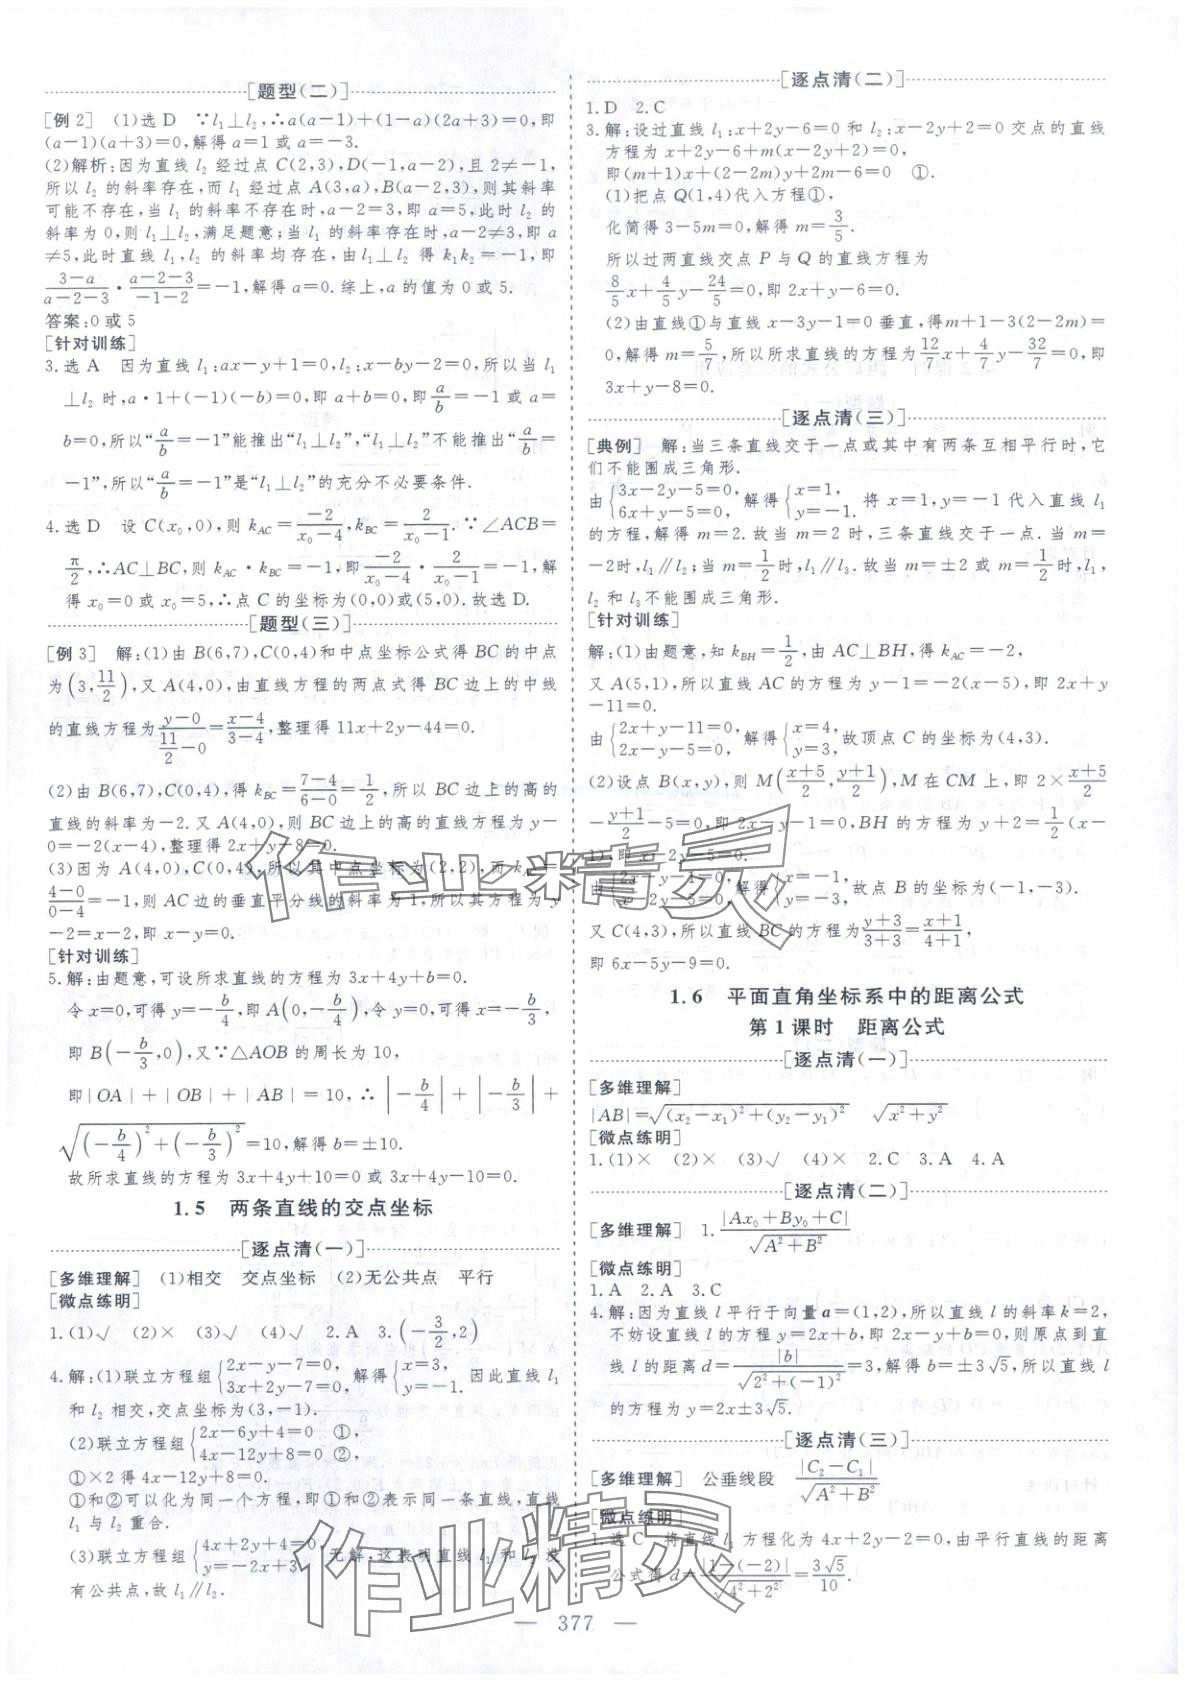 [题型(二)]
[例 2] (1)选 D ∵l₁⊥l₂,∴a(a−1)+(1−a)(2a+3)=0,即
(a−1)(a+3)=0,解得a=1或a=−3.
(2)解析:因为直线 l₂ 经过点 C(2,3),D(−1,a−2),且 2≠−1,
所以 l₂ 的斜率存在,而 l₁ 经过点 A(3,a),B(a−2,3),则其斜率
可能不存在,当 l₁ 的斜率不存在时,a−2=3,即 a=5,此时 l₂ 的
斜率为 0,则 l₁⊥l₂,满足题意;当 l₁ 的斜率存在时,a−2≠3,即 a
≠5,此时直线 l₁,l₂ 的斜率均存在,由 l₁⊥l₂ 得 k₁k₂=−1,即
(3−a)/(a−2−3)·(a−2−3)/(−1−2)=−1,解得 a=0.综上,a 的值为 0 或 5.
答案:0 或 5
[针对训练]
3.选 A 因为直线 l₁:ax−y+1=0,l₂:x−by−2=0,所以当 l₁
⊥l₂ 时,a·1+(−1)(−b)=0,即 a+b=0,即 a/b=−1 或 a=
b=0,所以“a/b=−1”能推出“l₁⊥l₂”,“l₁⊥l₂”不能推出“a/b=
−1”,所以“a/b=−1”是“l₁⊥l₂”的充分不必要条件.
4.选 D 设 C(x₀,0),则 k_AC=−2/(x₀−4),k_BC=2/(x₀−1).∵∠ACB=
π/2,∴AC⊥BC,则 k_AC·k_BC=−1,即 −2/(x₀−4)·2/(x₀−1)=−1,解
得 x₀=0 或 x₀=5,∴点 C 的坐标为(0,0)或(5,0).故选 D.
[题型(三)]
[例 3] 解:(1)由 B(6,7),C(0,4)和中点坐标公式得 BC 的中点
为(3,11/2),又 A(4,0),由直线方程的两点式得 BC 边上的中线
的直线方程为(y−0)/(11/2−0)=(x−4)/(3−4),整理得 11x+2y−44=0.
(2)由 B(6,7),C(0,4),得 k_BC=(7−4)/(6−0)=1/2,所以 BC 边上的高的
直线的斜率为−2.又 A(4,0),则 BC 边上的高的直线方程为 y−
0=−2(x−4),整理得 2x+y−8=0.
(3)因为 A(4,0),C(0,4),所以其中点坐标为(2,2),而 k_AC=
(4−0)/(0−4)=−1,则 AC 边的垂直平分线的斜率为 1,所以其方程为 y
−2=x−2,即 x−y=0.
[针对训练]
5.解:由题意,可设所求直线的方程为 3x+4y+b=0.
令 x=0,可得 y=−b/4,即 A(0,−b/4),令 y=0,可得 x=−b/3,
即 B(−b/3,0),又∵△AOB 的周长为 10,
即|OA|+|OB|+|AB|=10,∴|−b/4|+|−b/3|+
√((−b/4)²+(−b/3)²)=10,解得 b=±10.
故所求直线的方程为 3x+4y+10=0 或 3x+4y−10=0.
1.5 两条直线的交点坐标
[逐点清(一)]
[多维理解] (1)相交 交点坐标 (2)无公共点 平行
[微点练明]
1.(1)√ (2)× (3)√ (4)√ 2.A 3.(−3/2,2)
4.解:(1)联立方程组{2x−y−7=0, 3x+2y−7=0,解得{x=3, y=−1. 因此直线 l₁
和 l₂ 相交,交点坐标为(3,−1).
(2)联立方程组{2x−6y+4=0 ①, 4x−12y+8=0 ②,
①×2 得 4x−12y+8=0.
①和②可以化为同一个方程,即①和②表示同一条直线,直线
l₁ 与 l₂ 重合.
(3)联立方程组{4x+2y+4=0, y=−2x+3,无解,这表明直线 l₁ 和 l₂ 没
有公共点,故 l₁∥l₂.
[逐点清(二)]
1.D 2.C
3.解:设过直线 l₁:x+2y−6=0 和 l₂:x−2y+2=0 交点的直线
方程为 x+2y−6+m(x−2y+2)=0,
即(m+1)x+(2−2m)y+2m−6=0 ①.
(1)把点 Q(1,4)代入方程①,
化简得 3−5m=0,解得 m=3/5.
所以过两直线交点 P 与 Q 的直线方程为
8/5x+4/5y−24/5=0,即 2x+y−6=0.
(2)由直线①与直线 x−3y−1=0 垂直,得m+1−3(2−2m)=
0,解得 m=5/7,所以所求直线的方程为12/7x+4/7y−32/7=0,即
3x+y−8=0.
[逐点清(三)]
[典例] 解:当三条直线交于一点或其中有两条互相平行时,它
们不能围成三角形.
由{3x−2y−5=0, 6x+y−5=0,解得{x=1, y=−1. 将 x=1,y=−1 代入直线 l₁
的方程,解得 m=2.故当 m=2 时,三条直线交于一点.当 m=
−2时,l₁∥l₂;当 m=1/2时,l₁∥l₃.故当 m=±2 或 m=1/2时,l₁,
l₂ 和 l₃不能围成三角形.
[针对训练]
解:(1)由题意,知 k_BH=1/2,由 AC⊥BH,得 k_AC=−2,
又 A(5,1),所以直线 AC 的方程为 y−1=−2(x−5),即 2x+y
−11=0.
由{2x+y−11=0, 2x−y−5=0,解得{x=4, y=3,故顶点 C 的坐标为(4,3).
(2)设点 B(x,y),则 M((x+5)/2,(y+1)/2),M 在 CM 上,即 2×(x+5)/2
−(y+1)/2−5=0,即 2x−y−1=0,BH 的方程为 y+2=1/2(x−
1),即 x−2y−5=0.
由{2x−y−1=0, x−2y−5=0,解得{x=−1, y=−3, 故点 B 的坐标为(−1,−3).
又 C(4,3),所以直线 BC 的方程为(y+3)/(3+3)=(x+1)/(4+1),
即 6x−5y−9=0.
1.6 平面直角坐标系中的距离公式
第 1 课时 距离公式
[逐点清(一)]
[多维理解]
|AB|=√((x₂−x₁)²+(y₂−y₁)²) √(x²+y²)
[微点练明]
1.(1)× (2)× (3)√ (4)× 2.C 3.A 4.A
[逐点清(二)]
[多维理解] 1.|Ax₀+By₀+C|/√(A²+B²)
[微点练明]
1.A 2.A 3.C
4.解:因为直线 l 平行于向量 a=(1,2),所以直线 l 的斜率 k=2,
不妨设直线 l 的方程 y=2x+b,即 2x−y+b=0,则原点到直
线 l 的距离 d=|b|/√(2²+(−1)²)=3,解得 b=±3√5,所以直线 l
的方程为 y=2x±3√5.
[逐点清(三)]
[多维理解] 公垂线段 |C₂−C₁|/√(A²+B²)
[微点练明]
1.选 C 将直线 l₁ 方程化为 4x+2y−2=0,由平行直线的距离
公式得 d=|1−(−2)|/√(4²+2²)=3√5/10.
— 377 —
作业精灵
作业精灵